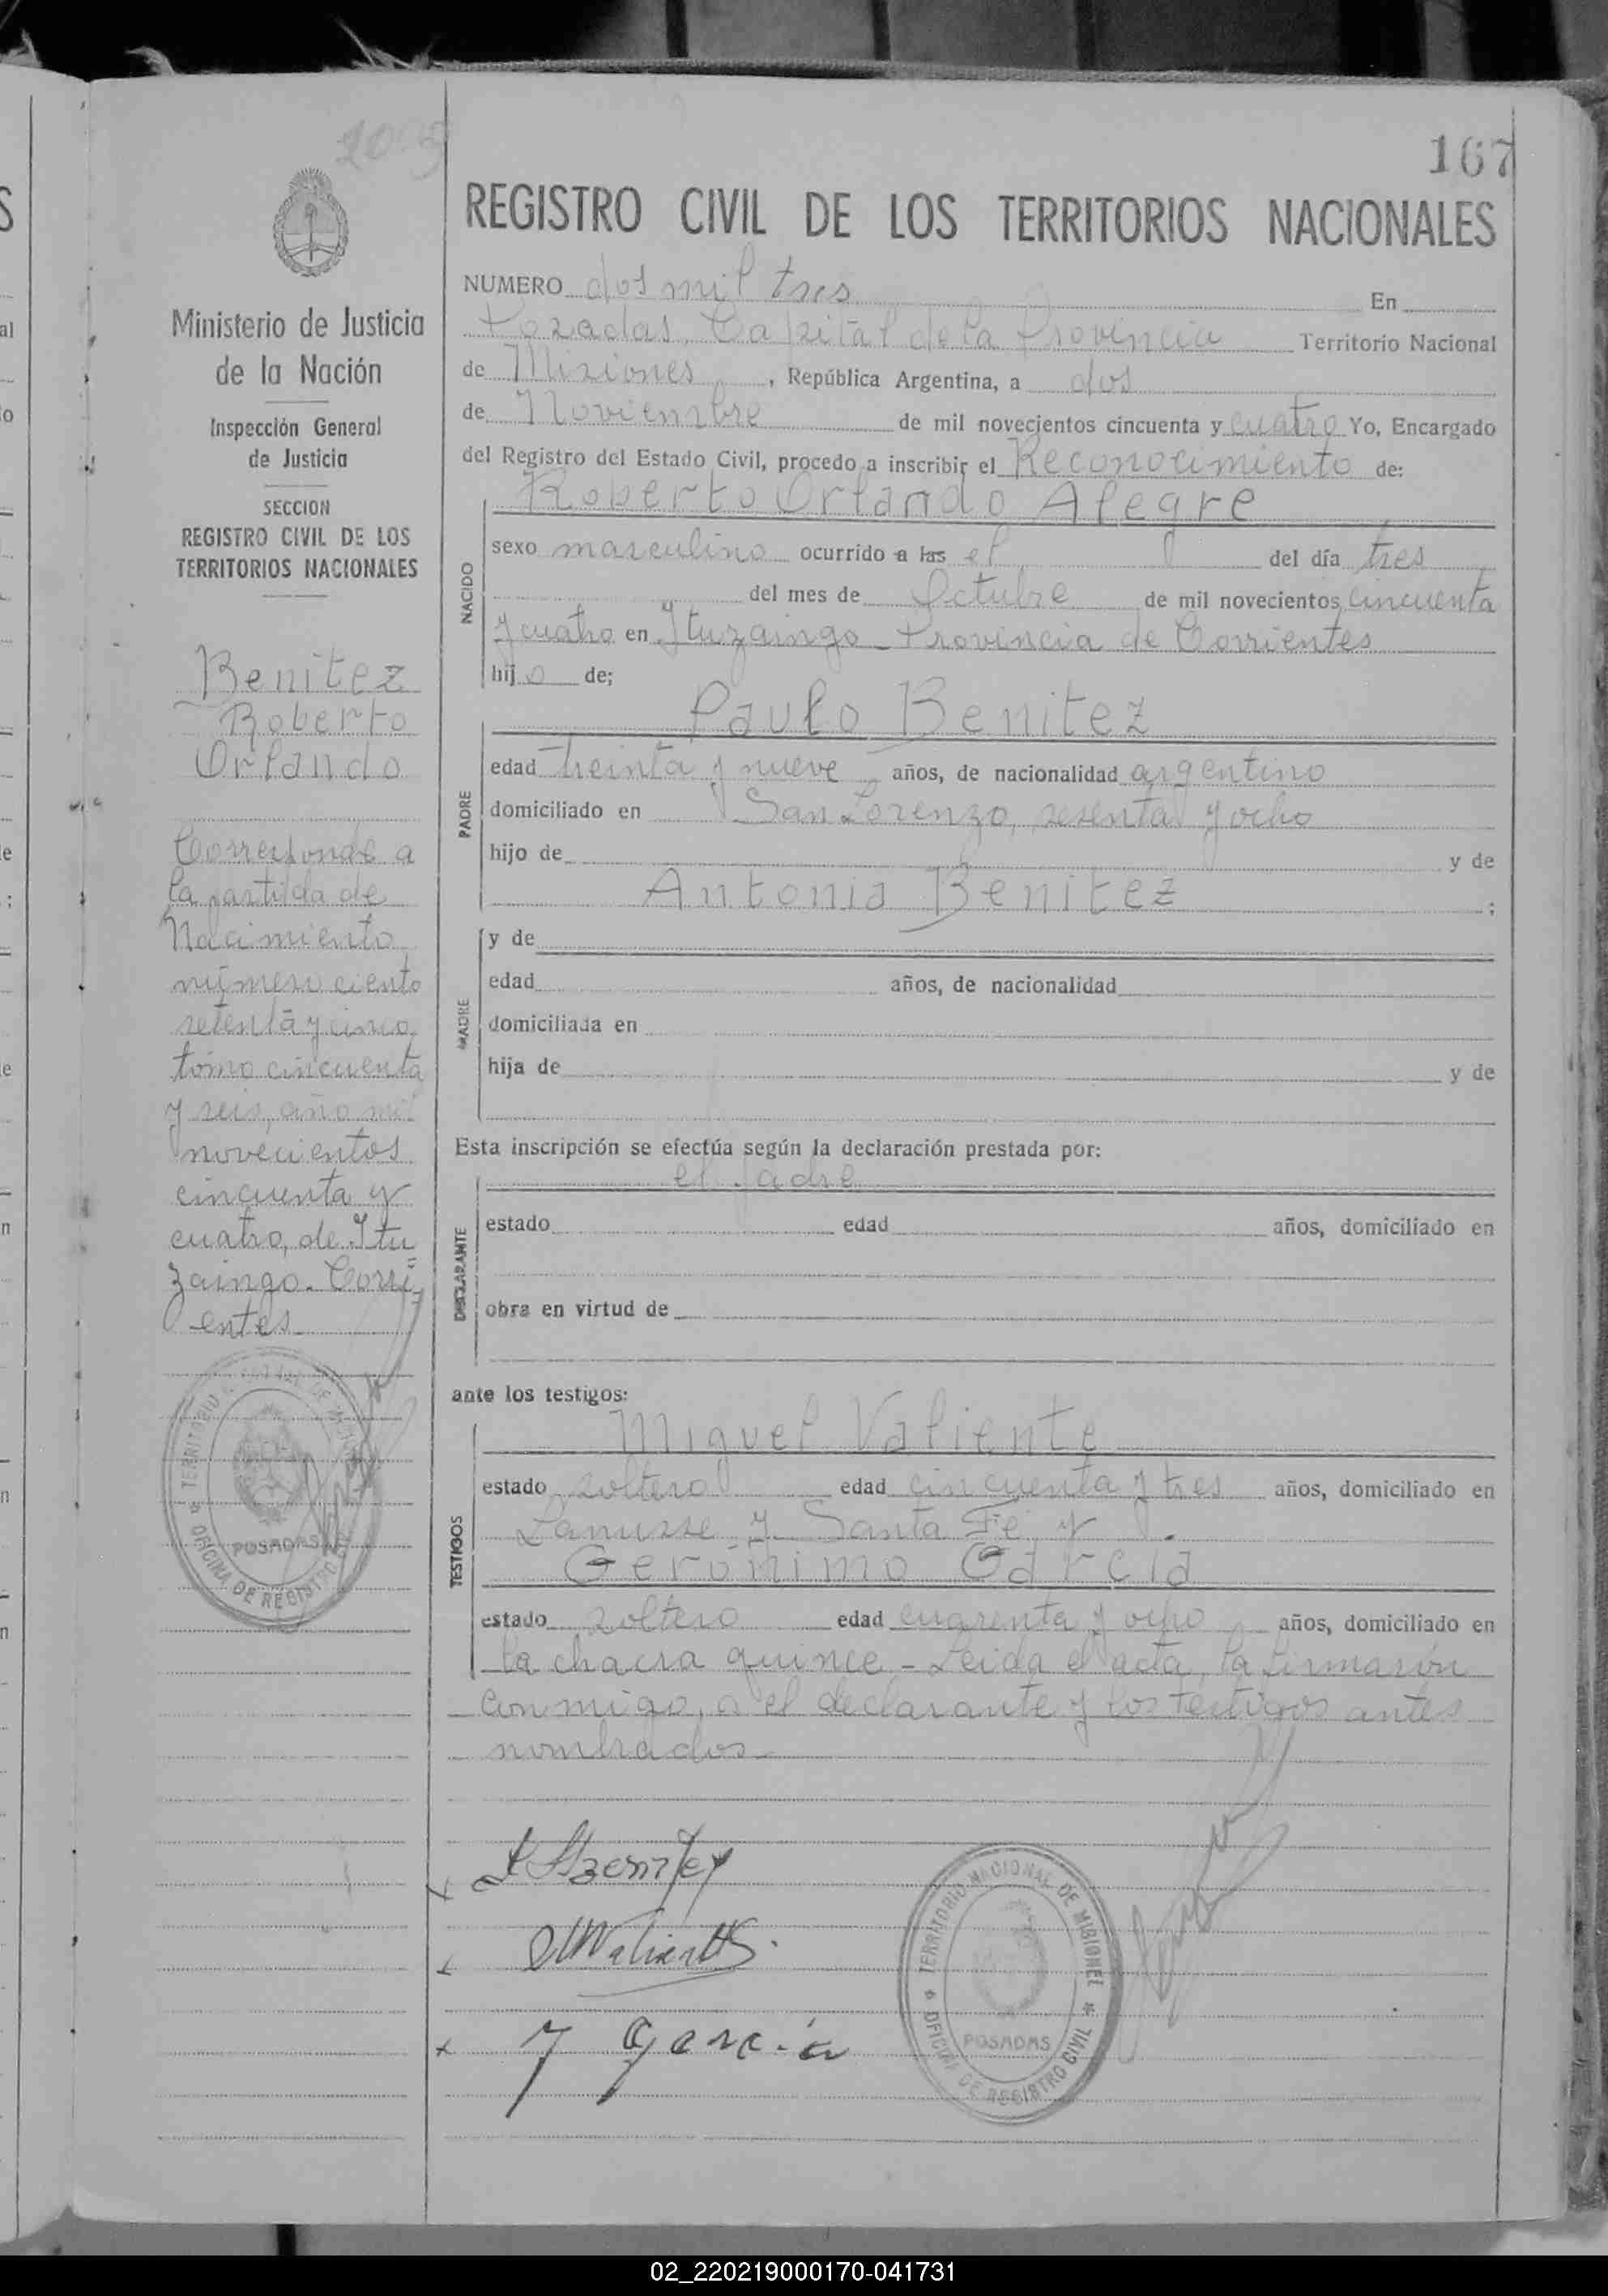 2003
167
REGISTRO CIVIL DE LOS TERRITORIOS NACIONALES
Ministerio de Justicia
de la Nación
Inspección General
de Justicia
SECCION
REGISTRO CIVIL DE LOS
TERRITORIOS NACIONALES
Benitez
Roberto
Orlando
Corresponde a
la partida de
Nacimiento
número ciento
setenta y cinco
tomo cincuenta
y seis, año mil
novecientos
cincuenta y
cuatro, de Itu
zaingo. Corri
entes
OFICINA DE REGISTRO
POSADAS
NUMERO dos mil tres En
Posadas, Capital de la Provincia Territorio Nacional
de Misiones, República Argentina, a dos
de Noviembre de mil novecientos cincuenta y cuatro Yo, Encargado
del Registro del Estado Civil, procedo a inscribir el Reconocimiento de:
Roberto Orlando Alegre
NACIDO
sexo masculino ocurrido a las el del día tres
del mes de Octubre de mil novecientos cincuenta
y cuatro en Ituzaingo - Provincia de Corrientes
hijo de;
Paulo Benitez
PADRE
edad treinta y nueve años, de nacionalidad argentino
domiciliado en San Lorenzo, sesenta y ocho
hijo de y de
Antonia Benitez ;
MADRE
y de
edad años, de nacionalidad
domiciliada en
hija de y de
Esta inscripción se efectúa según la declaración prestada por:
el padre
DECLARANTE
estado edad años, domiciliado en
obra en virtud de
ante los testigos:
Miguel Valiente
TESTIGOS
estado soltero edad cincuenta y tres años, domiciliado en
Lanusse y Santa Fé y
Gerónimo Garcia
estado soltero edad cuarenta y ocho años, domiciliado en
la chacra quince - Leida el acta, la firmaron
conmigo, el declarante y los testigos antes
nombrados
M Valiente
J Garcia
TERRITORIO NACIONAL DE MISIONES
OFICINA DE REGISTRO CIVIL
POSADAS
02_220219000170-041731